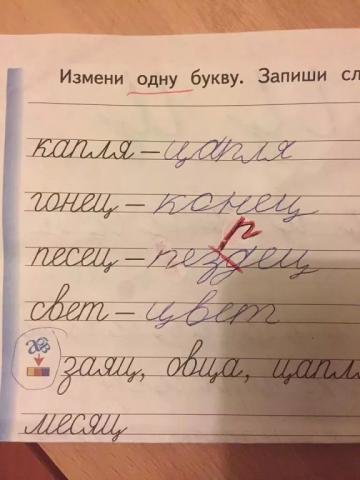 Измени одну букву. Запиши сл
капля – цапля
гонец – конец
р
песец – пездец
свет – цвет
заяц, овца, цапл
месяц